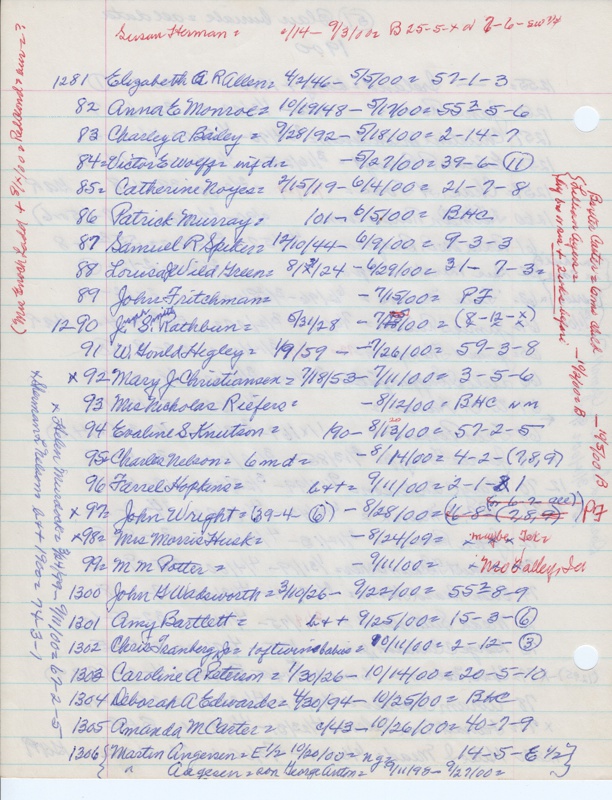 Susan Herman = c/14 - 9/3/00 = B 25-5-x
1281 Elizabeth A R Allen = 4/2/46 - 5/5/00 = 57-1-3
82 Anna E Monroe = 10/19/48 - 5/17/00 = 55² 5-6
83 Charley A Bailey = 9/28/92 - 5/18/00 = 2-14-7
84 = Victor E Wolff = inf d = - 5/27/00 = 39-6-(11)
85 = Catherine Noyes = 2/15/19 - 6/4/00 = 21-7-8
86 Patrick Murray = 101 - 6/5/00 = BHC
87 Samuel R Spiker = 12/10/44 - 6/9/00 = 9-3-3
88 Louisa J Wild Green = /24 - 6/29/00 = 31-7-3=
89 John Fritchman = - 7/15/00 = PF
1290 S. Rathbun = 5/31/28 - = (8-12-x)
91 W Gould Hegley = /59 - 7/26/00 = 59-3-8
x 92 = Mary J Christiansen = 7/18/53 - 7/11/00 = 3-5-6
93 Mrs Nicholas Riefers = - 8/12/00 = BHC nm
94 Evaline S Knutson = 190 - = 57-2-5
95 = Charles Nelson = 6 m d = - 8/14/00 = 4-2-(7,8,9)
96 Farrel Hopkins = b++ 9/11/00 = 2-1- 1
x 97 = John Wright = (39-4-(6)) - 8/28/00 = PF
x 98 = Mrs Morris Husk = - 8/24/09 = maybe
99 = M M Potter = - 9/11/00 =
1300 John H Wadsworth = 3/10/26 - 9/22/00 = 55² 8-9
1301 Amy Bartlett = b++ 9/25/00 = 15-3-(6)
1302 Chris Tranberg Jr = 1 of twin babies = 10/11/00 = 2-12-(3)
1303 Caroline A Peterson = 1/30/26 - 10/14/00 = 20-5-10
1304 Deborah A Edwards = 4/30/94 - 10/25/00 = BHC
1305 Amanda M Carter = c/43 - 10/26/00 = 40-7-9
1306 { Martin Angesen = E½ 10/20/00 = ng = 14-5-E½ }
{ " Angesen = son George Anton = 9/11/98 - 9/27/00 =
x Helen = 9/11/00 = 67-2-5
x Sherman L Nelson b++ 1900 = 74-3-1
Baxter Carter = came back - 10/4/00 = B
- 10/5/00 B